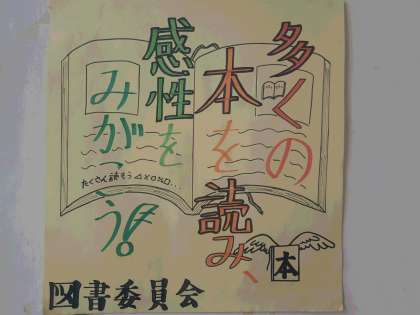 多くの、
本を読み、
感性を
みがこう!
たくさん読もう
本
図書委員会